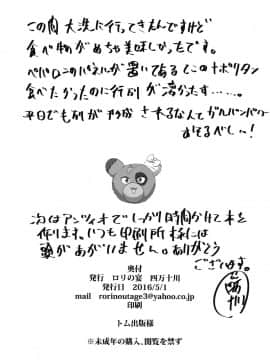 この間大洗に行ってきたんですけど
食べ物がめちゃ美味しかったです。
ペパロニのパネルが置いてある ナポリタン
食べたかったのに行列が凄かったす……。
平日でも列が形成されるなんてガルパンパワー
おそるべし…!
次はアンツィオでしっかり時間かけて本を
作ります。いつも印刷所様には
頭があがいません。ありがとう
ございます。
四万十川
奥付
発行 ロリの宴 四万十川
発行日 2016/5/1
mail rorinoutage3@yahoo.co.jp
印刷
トム出版様
※未成年の購入、閲覧を禁ず